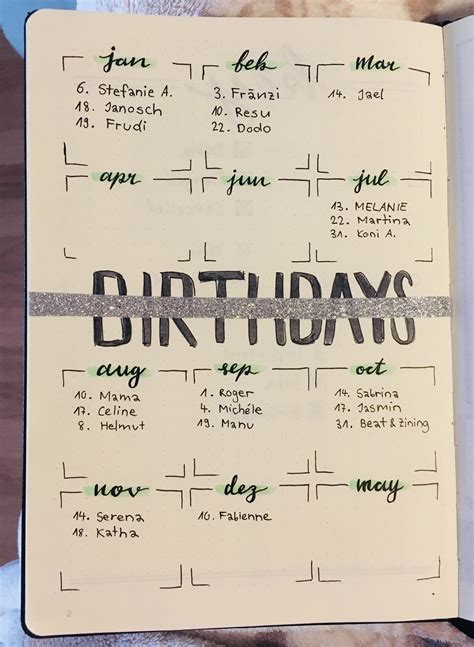 jan feb Mar
6. Stefanie A.
18. Janosch
19. Frudi
3. Fränzi
10. Resu
22. Dodo
14. Jael
apr jun jul
13. MELANIE
22. Martina
31. Koni A.
BIRTHDAYS
aug sep oct
10. Mama
17. Celine
8. Helmut
1. Roger
4. Michéle
19. Manu
14. Sabrina
17. Jasmin
31. Beat & Zining
nov dez may
14. Serena
18. Katha
10. Fabienne
2